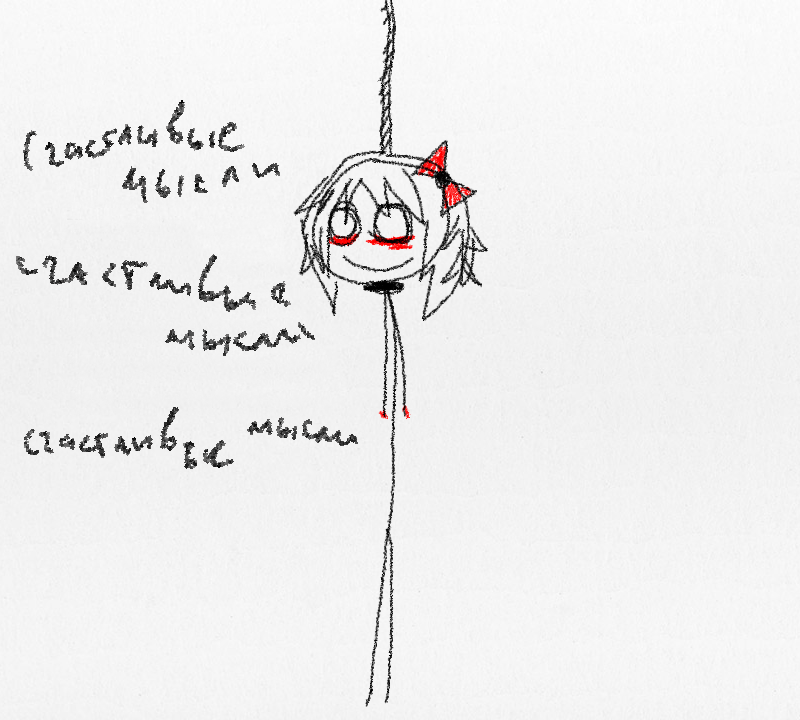 счастливые
мысли
счастливые
мысли
счастливые мысли